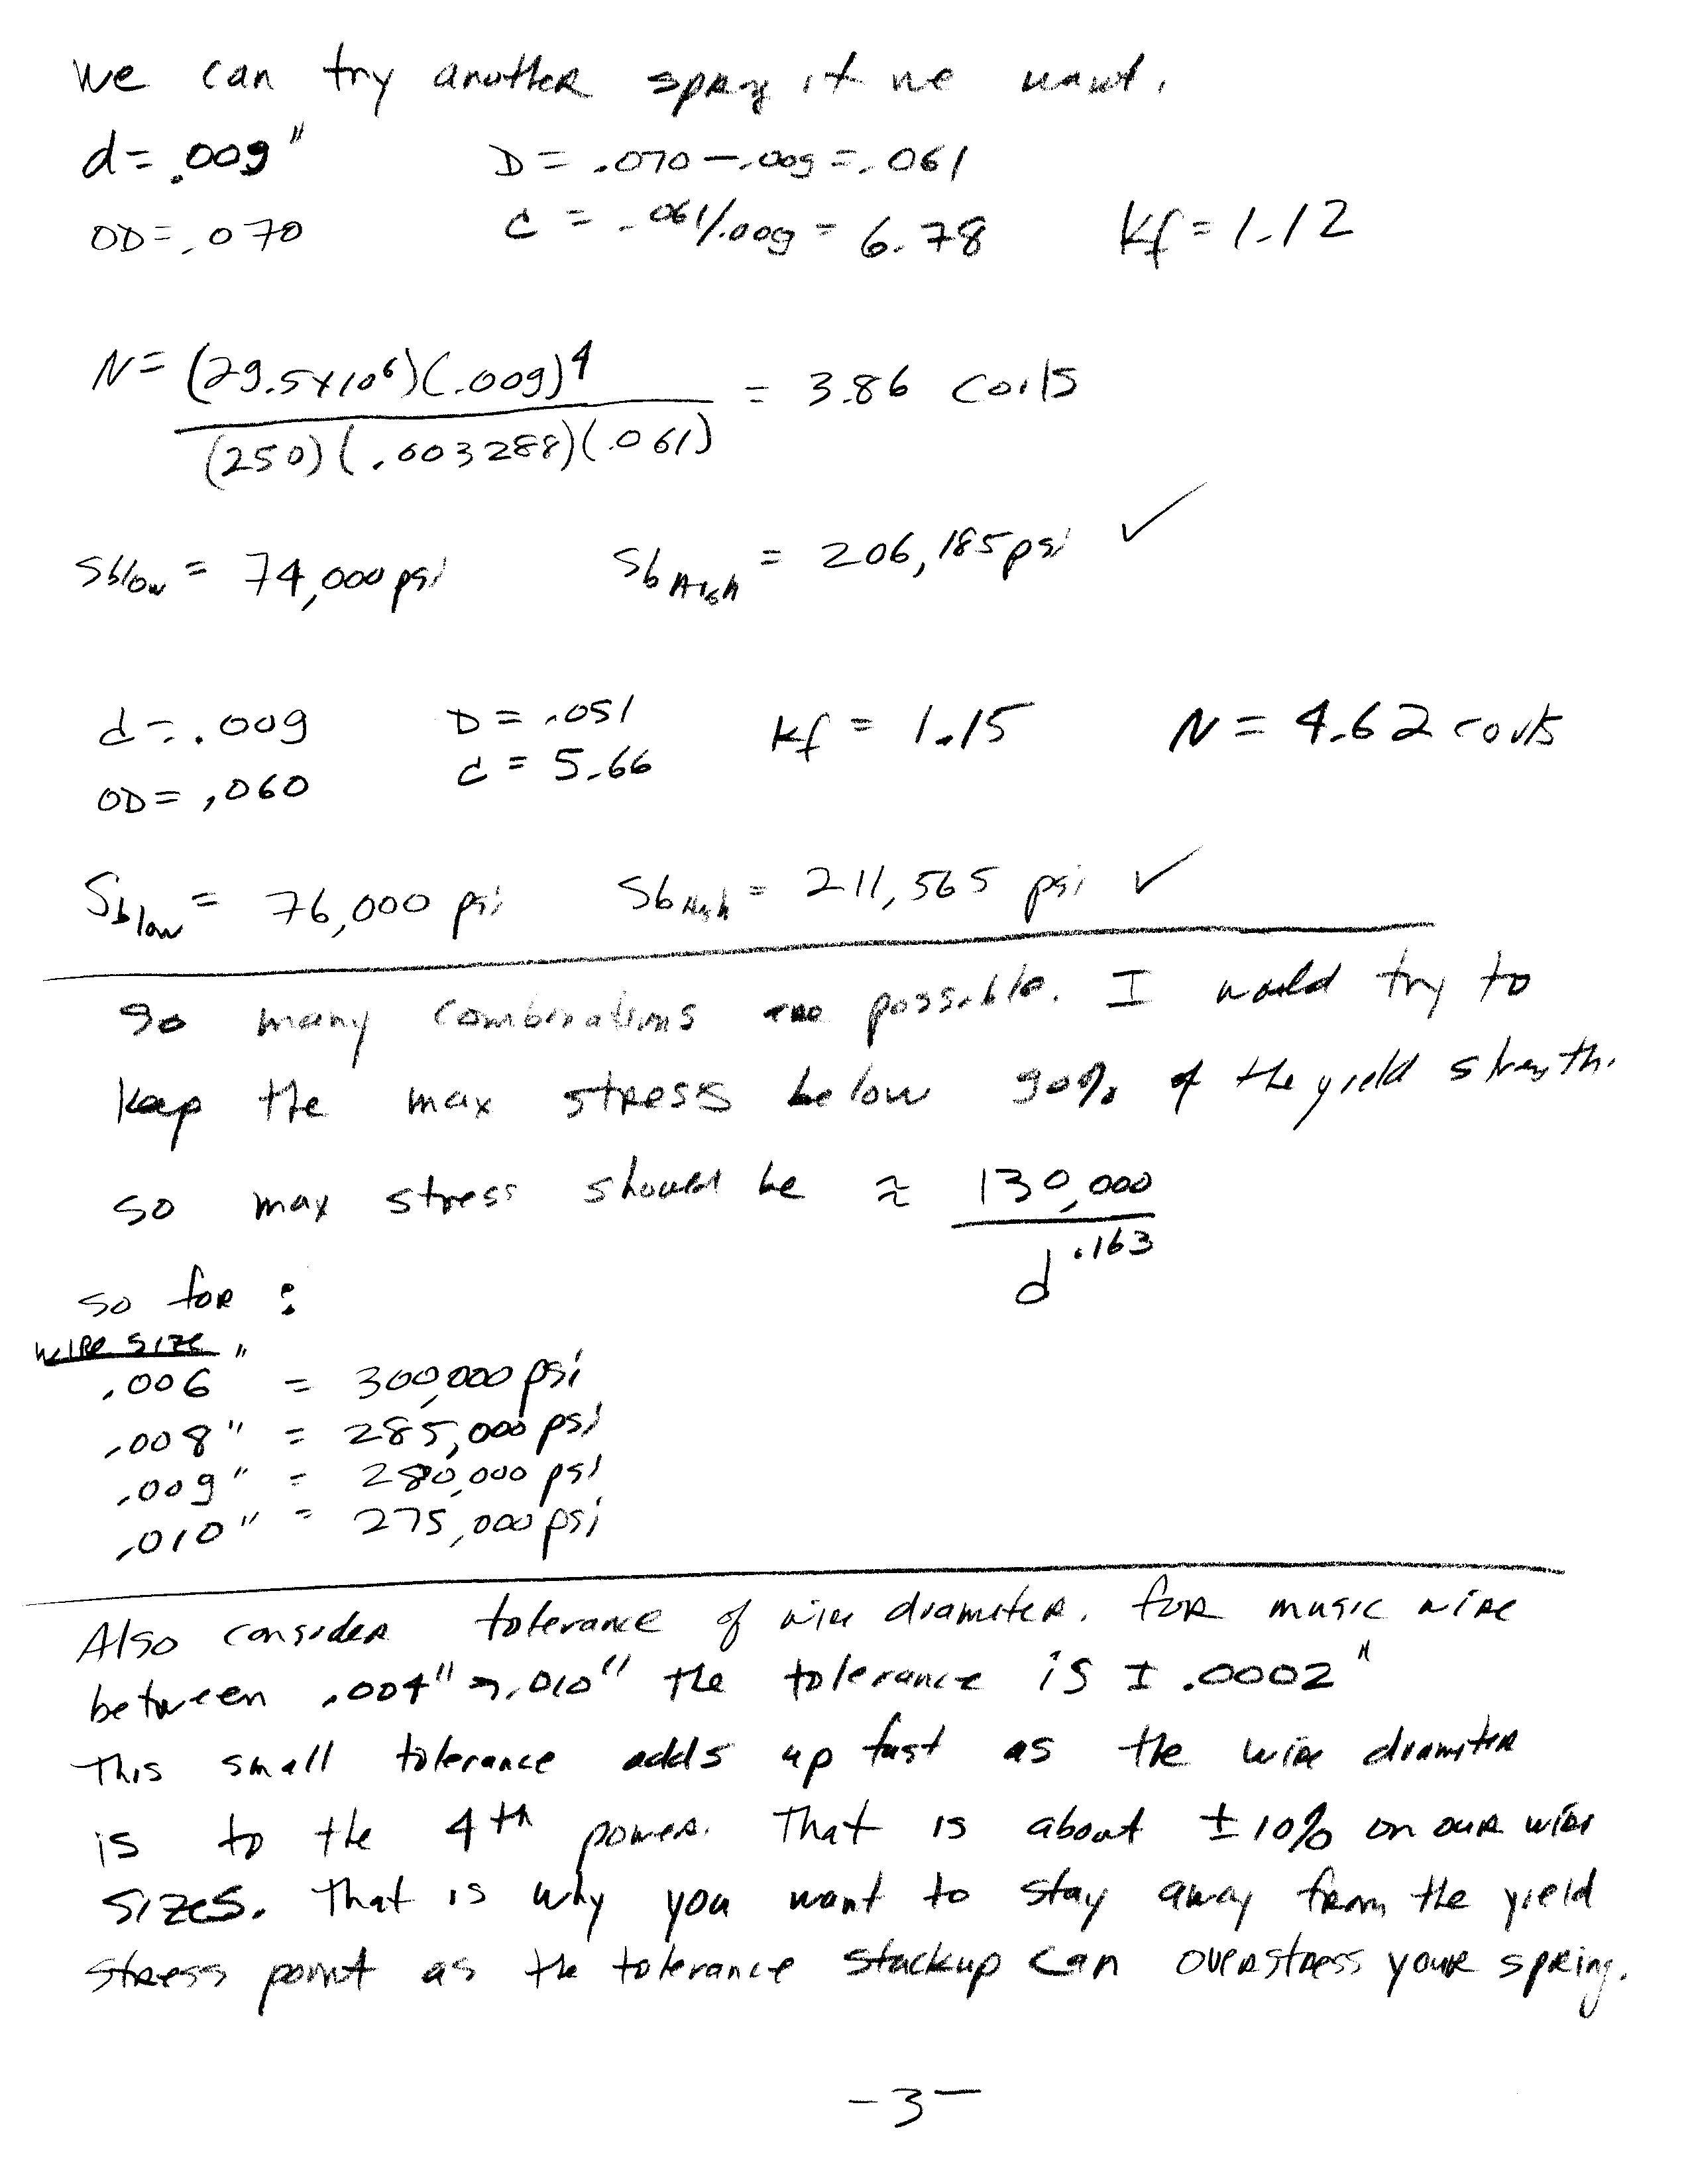 We can try another spring if we want.
d = .009" D = .070 - .009 = .061
OD = .070 C = .061/.009 = 6.78 Kf = 1.12
N = (29.5x10^6)(.009)^4
= 3.86 coils
(250)(.003288)(.061)
Sb low = 74,000 psi Sb High = 206,185 psi ✓
d = .009 D = .051 Kf = 1.15 N = 4.62 coils
OD = .060 C = 5.66
Sb low = 76,000 psi Sb High = 211,565 psi ✓
So many combinations are possible. I would try to
keep the max stress below 90% of the yield strength.
So max stress should be ≈ 130,000
d^.163
So for :
WIRE SIZE
.006" = 300,000 psi
.008" = 285,000 psi
.009" = 280,000 psi
.010" = 275,000 psi
Also consider tolerance of wire diameter. For music wire
between .004" → .010" the tolerance is ± .0002"
This small tolerance adds up fast as the wire diameter
is to the 4th power. That is about ±10% on our wire
sizes. That is why you want to stay away from the yield
stress point as the tolerance stackup can overstress your spring.
-3-